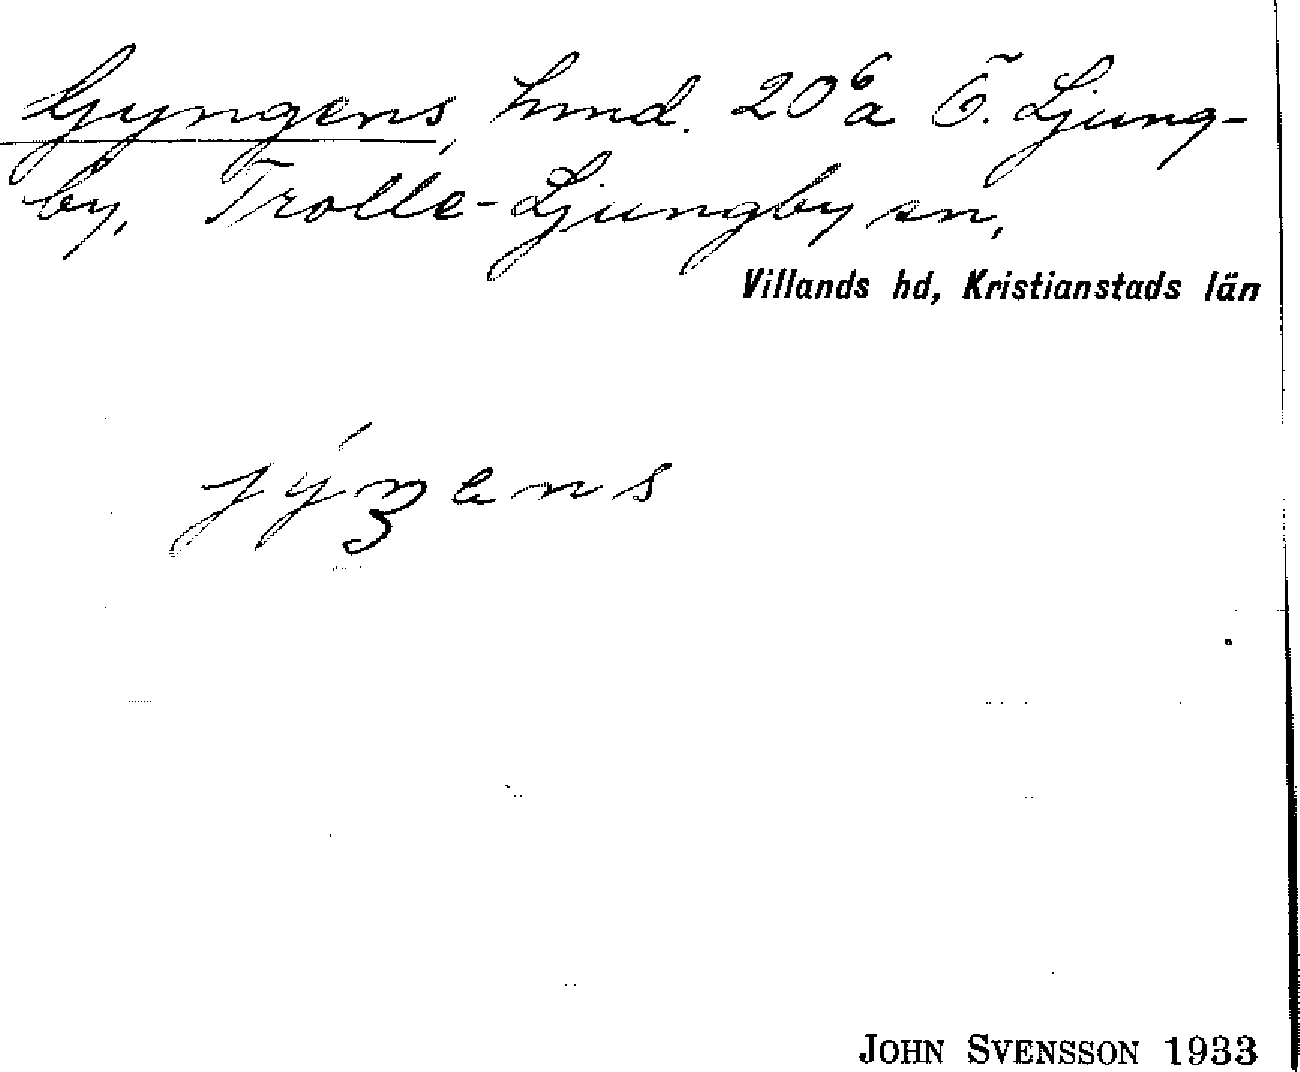 Gyngens, hmd. 20⁶a Ö. Ljung-
by, Trolle-Ljungby sn,
Villands hd, Kristianstads län
jýŋens
JOHN SVENSSON 1933